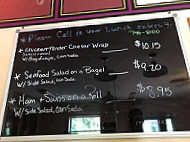 * Please Call in your Lunch orders
* Chicken Tender Caesar Wrap $10.15
W/ Bag of chips, Can Soda
* Seafood Salad on a Bagel $9.20
W/ Side Salad, Can Soda
* Ham & Swiss on a Roll $8.95
W/ Side Salad, Can Soda